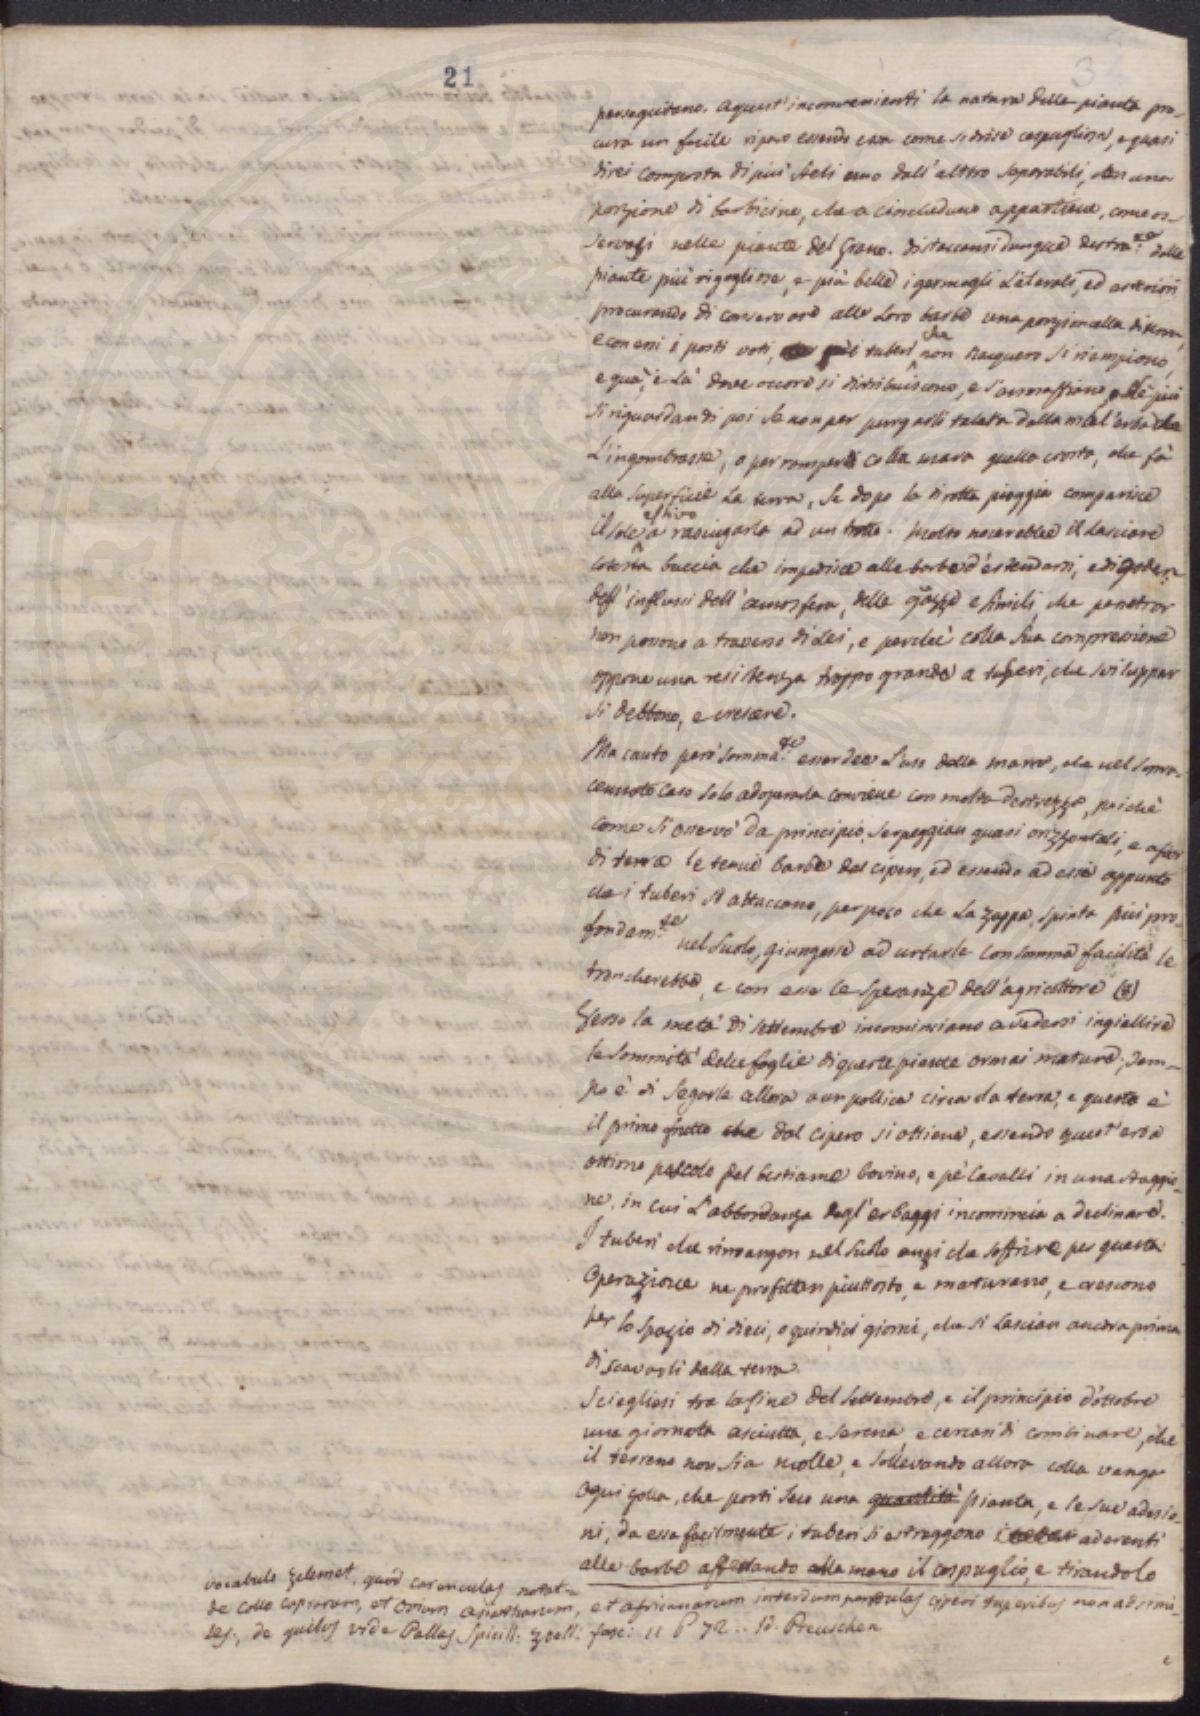 21
3
perseguitano. A quest'inconvenienti la natura delle piante pro-
cura un facile riparo essendo essa come si disse cespugliosa, e quasi
direi composta di più steli uno dall'altro separabili, con una
porzione di barbicine, che a ciascheduno appartiene, come os-
servasi nelle piante del Grano. Distaccansi dunque destramte dalle
piante più rigogliose, e più belle i germogli laterali, ed esteriori
procurando di conservare alle loro barbe una porzioncella di terra,
e con essi i posti voti, i tuberi che non nacquero si riempiono,
e quà, e là dove occore si distribuiscono, e s'annaffiano, nè più
si riguardandi poi se non per purgarli talota dalla mal'erba che
l'ingombrasse, o per romperli colla mara quella crosta, che fà
alla superficie la terra, se dopo la dirotta pioggia comparisce
il sole estivo a rasciugarla ad un tratto. Molto nocerebbe il lasciare
cotesta buccia che impedisce alle barbe d'estendersi, e di goder
degl'influssi dell'atmosfera, delle guazze e simili, che penetrar
non possono a traverso di lei, e perchè colla sua compressione
oppone una resistenza troppo grande a tuberi, che sviluppar
si debbono, e crescere.
Ma cauto però sommamte esser dee l'uso della marra, che nel sopra-
cennato caso solo adoperarla conviene con molta destrezza, poichè
come si osservò da principio serpeggian quasi orizzontali, e a fior
di terra le tenui barbe del cipero, ed essendo ad esse appunto
che i tuberi si attaccano, per poco che la zappa spinta più pro-
fondamte nel suolo, giungesse ad urtarle con somma facilità le
troncherebbe, e con esse le speranze dell'agricoltore (8)
Verso la metà di settembre incominciano a vedersi ingiallire
le sommità delle foglie di queste piante ormai mature; Tem-
po è di segarle allora a un pollice circa da terra, e questo è
il primo frutto che dal cipero si ottiene, essendo quest'erba
ottimo pascolo pel bestiame bovino, e pè Cavalli in una staggio-
ne, in cui l'abbondanza degl'erbaggi incomincia a declinare.
I tuberi che rimangon nel suolo anzi che soffrire per questa
operazione ne profittan piuttosto, e maturano, e crescono
per lo spazio di dieci, o quindici giorni, che si lascian ancora prima
di scavarli dalla terra.
Sciegliesi tra la fine del settembre, e il principio d'ottobre
una giornata asciutta, e serena, e cercasi di combinare, che
il terreno non sia molle, e sollevando allora colla vanga
ogni zolla, che porti seco una quantità pianta, e le sue adesio-
ni, da essa facilmente i tuberi si estraggono aderenti
alle barbe afferrando colla mano il cespuglio, e tirandolo
vocabulo Zelemet, quod carunculas notat
de collo Caprarum, et Ovium asiaticarum, et africanarum interdum pendulas cyperi tuberibus non adsimi-
les, de quibus vide Pallas Spicil: Zooll: fasc: 11 p 72.. Id. Preuschen